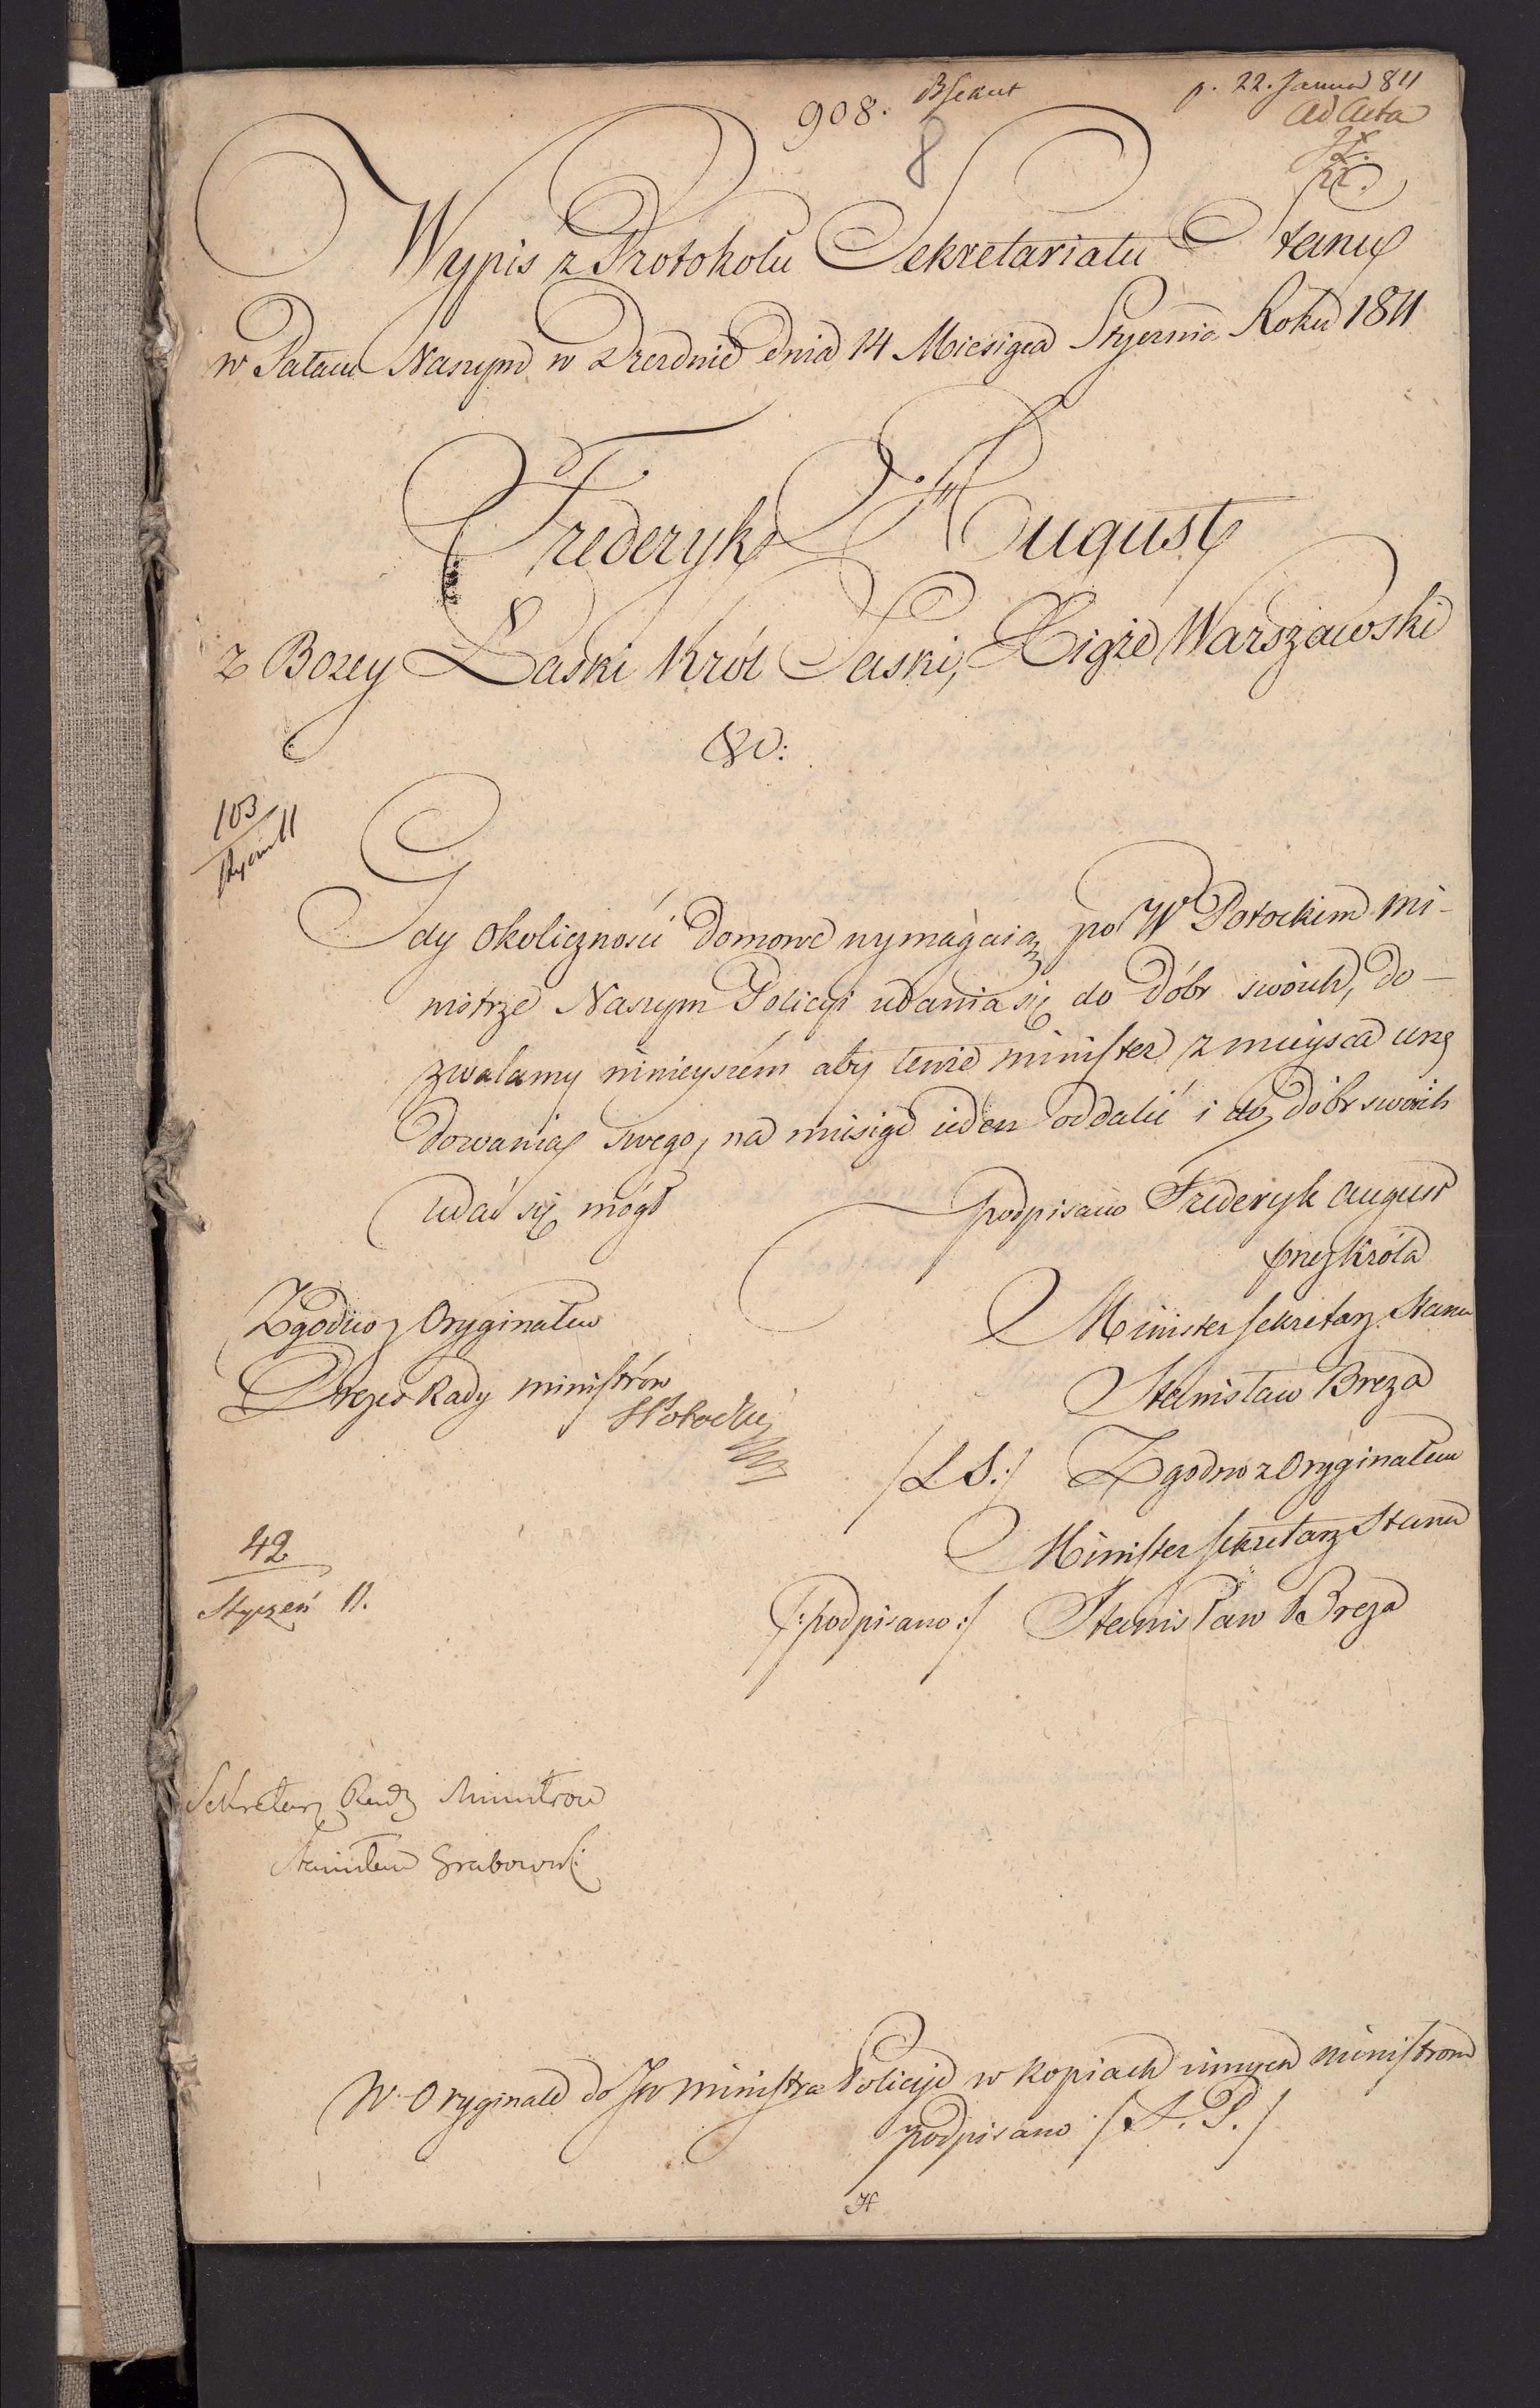 908.
p. 22. Januar 811
ad Acta
8
Wypis z Protokołu Sekretariatu Stanu
w Pałacu Naszym w Dreznie dnia 14 Miesiąca Stycznia Roku 1811
Frederyk August
z Bozey Łaski Król Saski, Xiąże Warszawski
&c:
103
Stycz. 11
Gdy okoliczności domowe wymagaią po W Potockim Mi-
nistrze Naszym Policyi udania się do dóbr swoich, do-
zwalamy ninieyszém aby tenże minister z mieysca urzę
dowania swego, na miesiąc ieden oddalić i do dóbr swoich
udać się mógł
podpisano Frederyk August
przez Króla
Zgodno z Oryginałem
Minister Sekretarz Stanu
Prezes Rady Ministrów
Stanisław Breza
SPotocki
/L S:/ Zgodno z Oryginałem
Minister Sekretarz Stanu
42
Styczeń 11.
/:podpisano:/ Stanisław Breza
Sekretarz Rady Ministrow
Stanisław Grabowski
W Oryginale do JW Ministra Policyi w kopiach innych ministrom
podpisano /S. P./